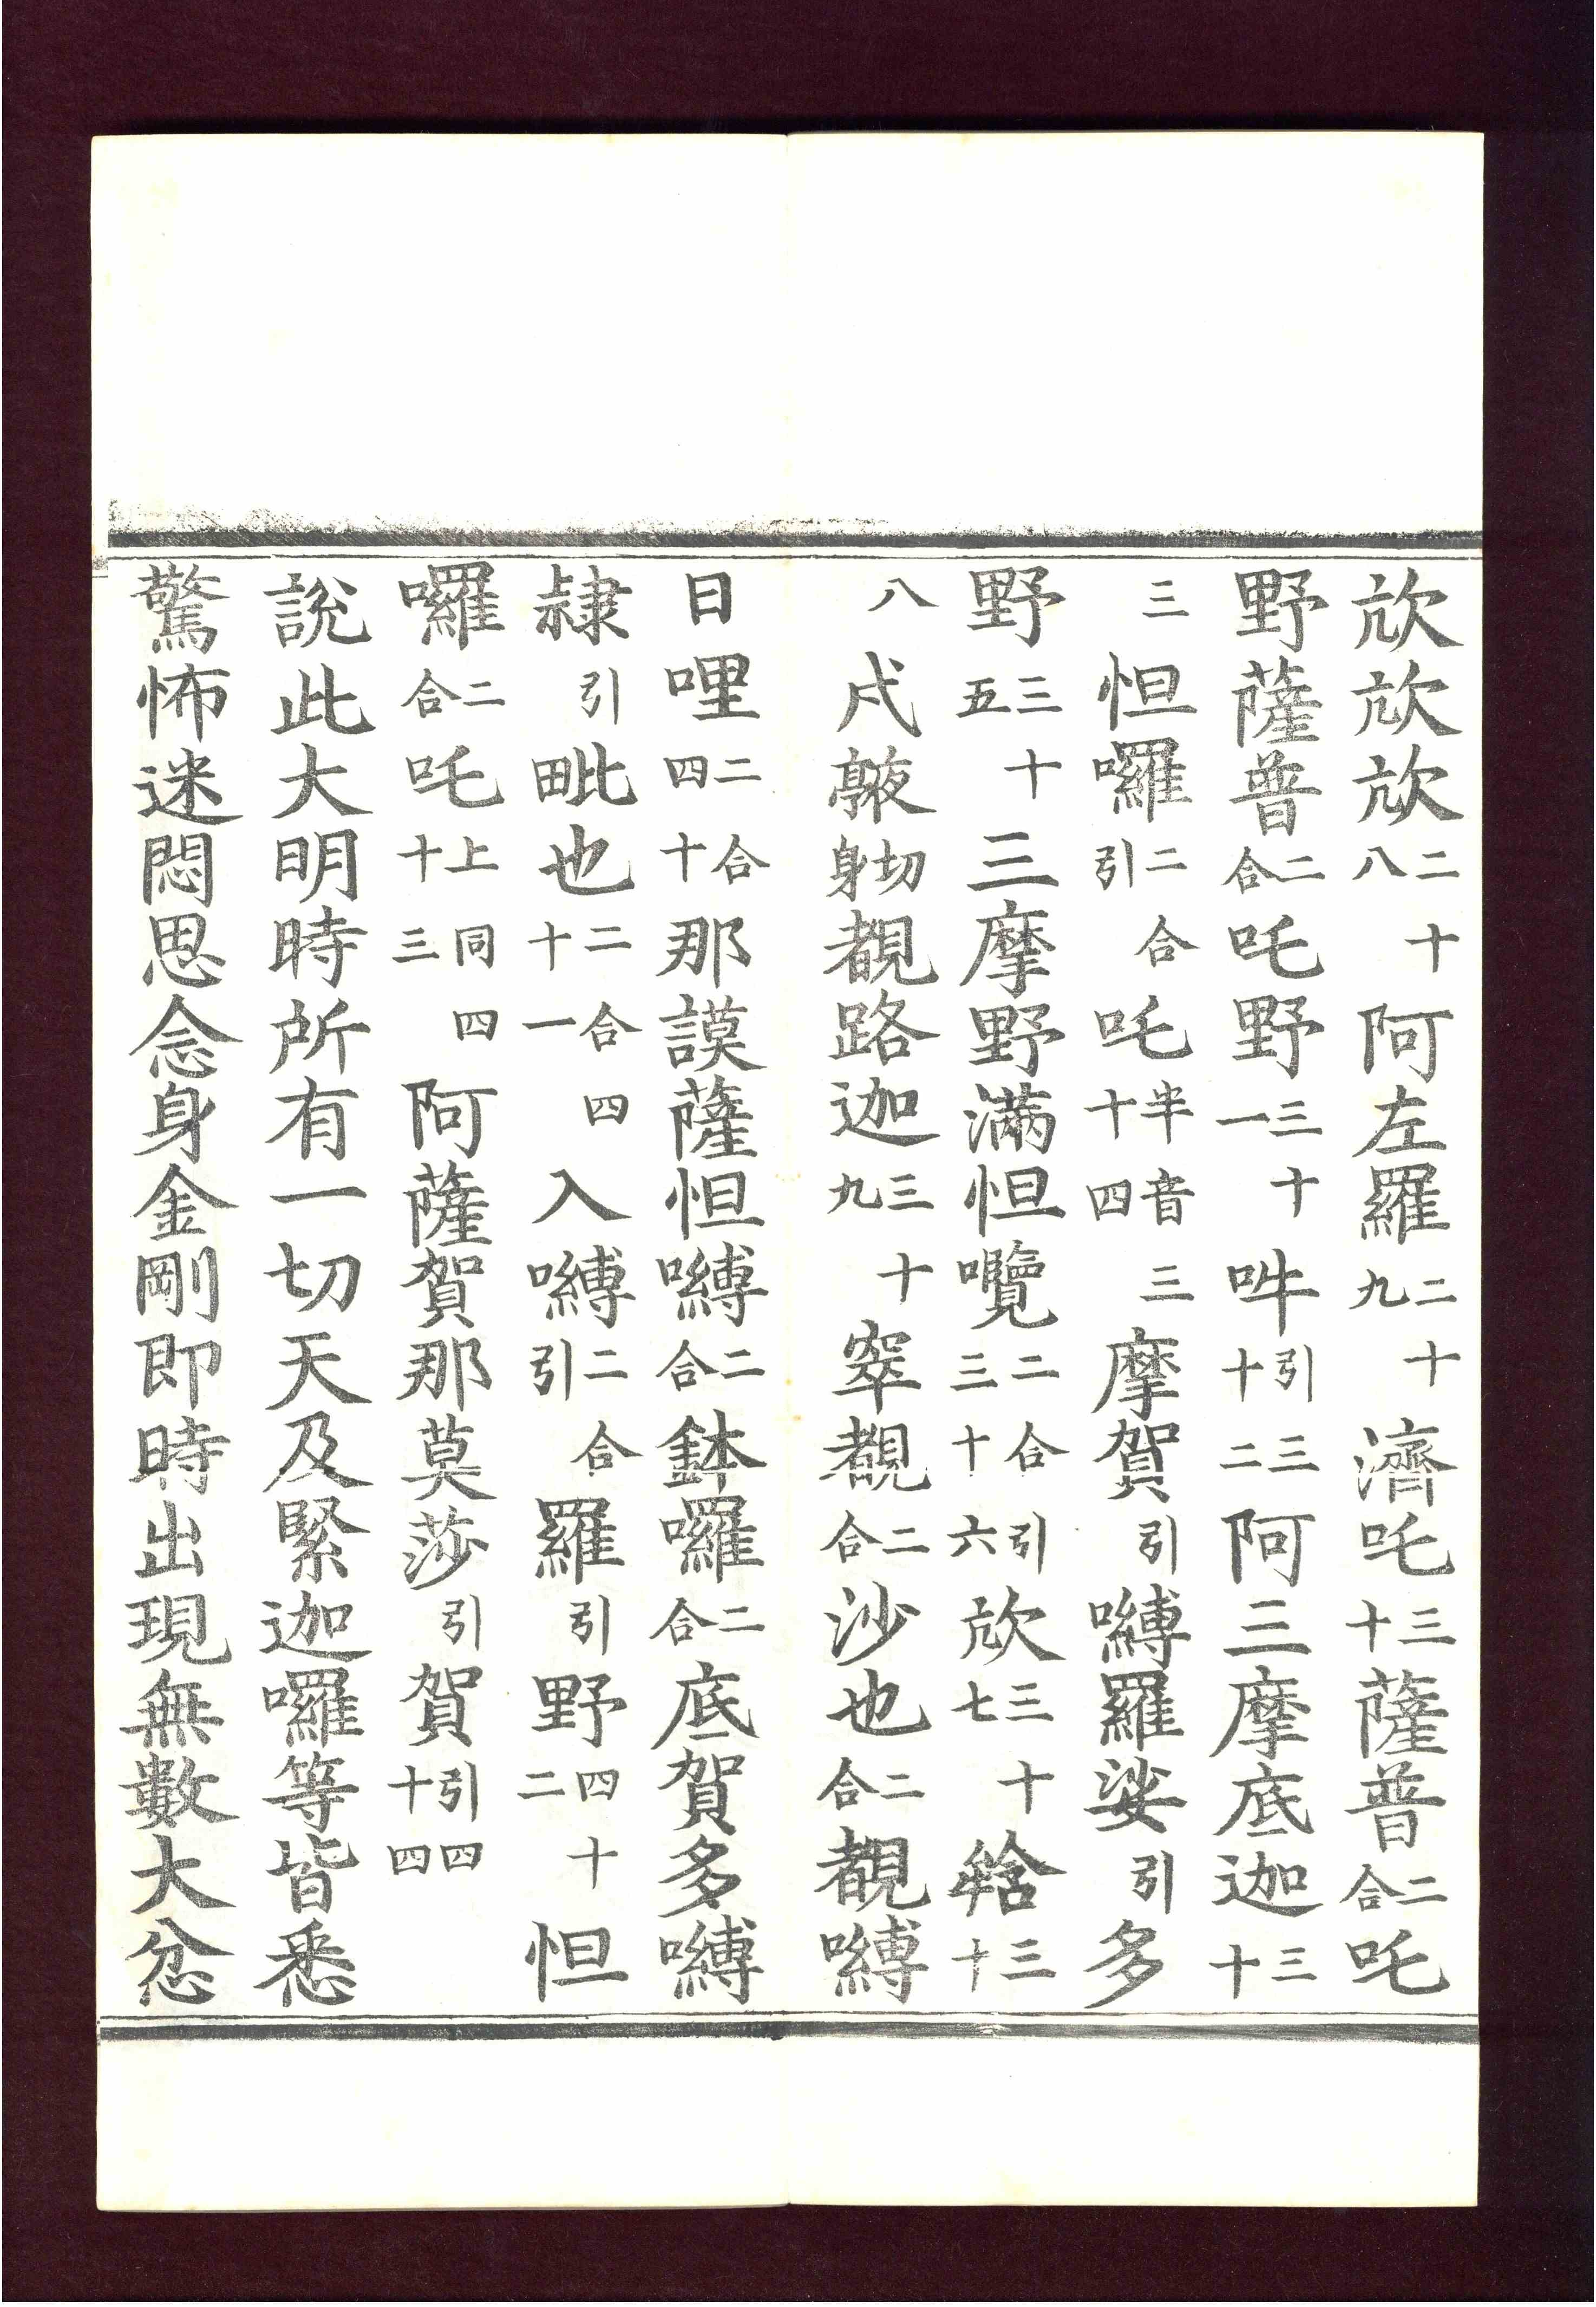 㰠㰠㰠二十八阿左羅二十九濟吒三十薩普二合吒
野薩普二合吒野三十一吽引三十二阿三摩底迦三十
三怛囉二合引吒半音三十四摩賀引嚩羅娑引多
野三十五三摩野滿怛囕二合引三十六㰠三十七𤚥三十
八戍𠆙切身覩路迦三十九窣覩二合沙也二合覩嚩
日哩二合四十那謨薩怛嚩二合鉢囉二合底賀多嚩
隷引毗也二合四十一入嚩二合引羅引野四十二怛
囉二合吒上同四十三阿薩賀那莫莎引賀引四十四
說此大明時所有一切天及緊迦囉等皆悉
驚怖迷悶思念身金剛即時出現無數大忿